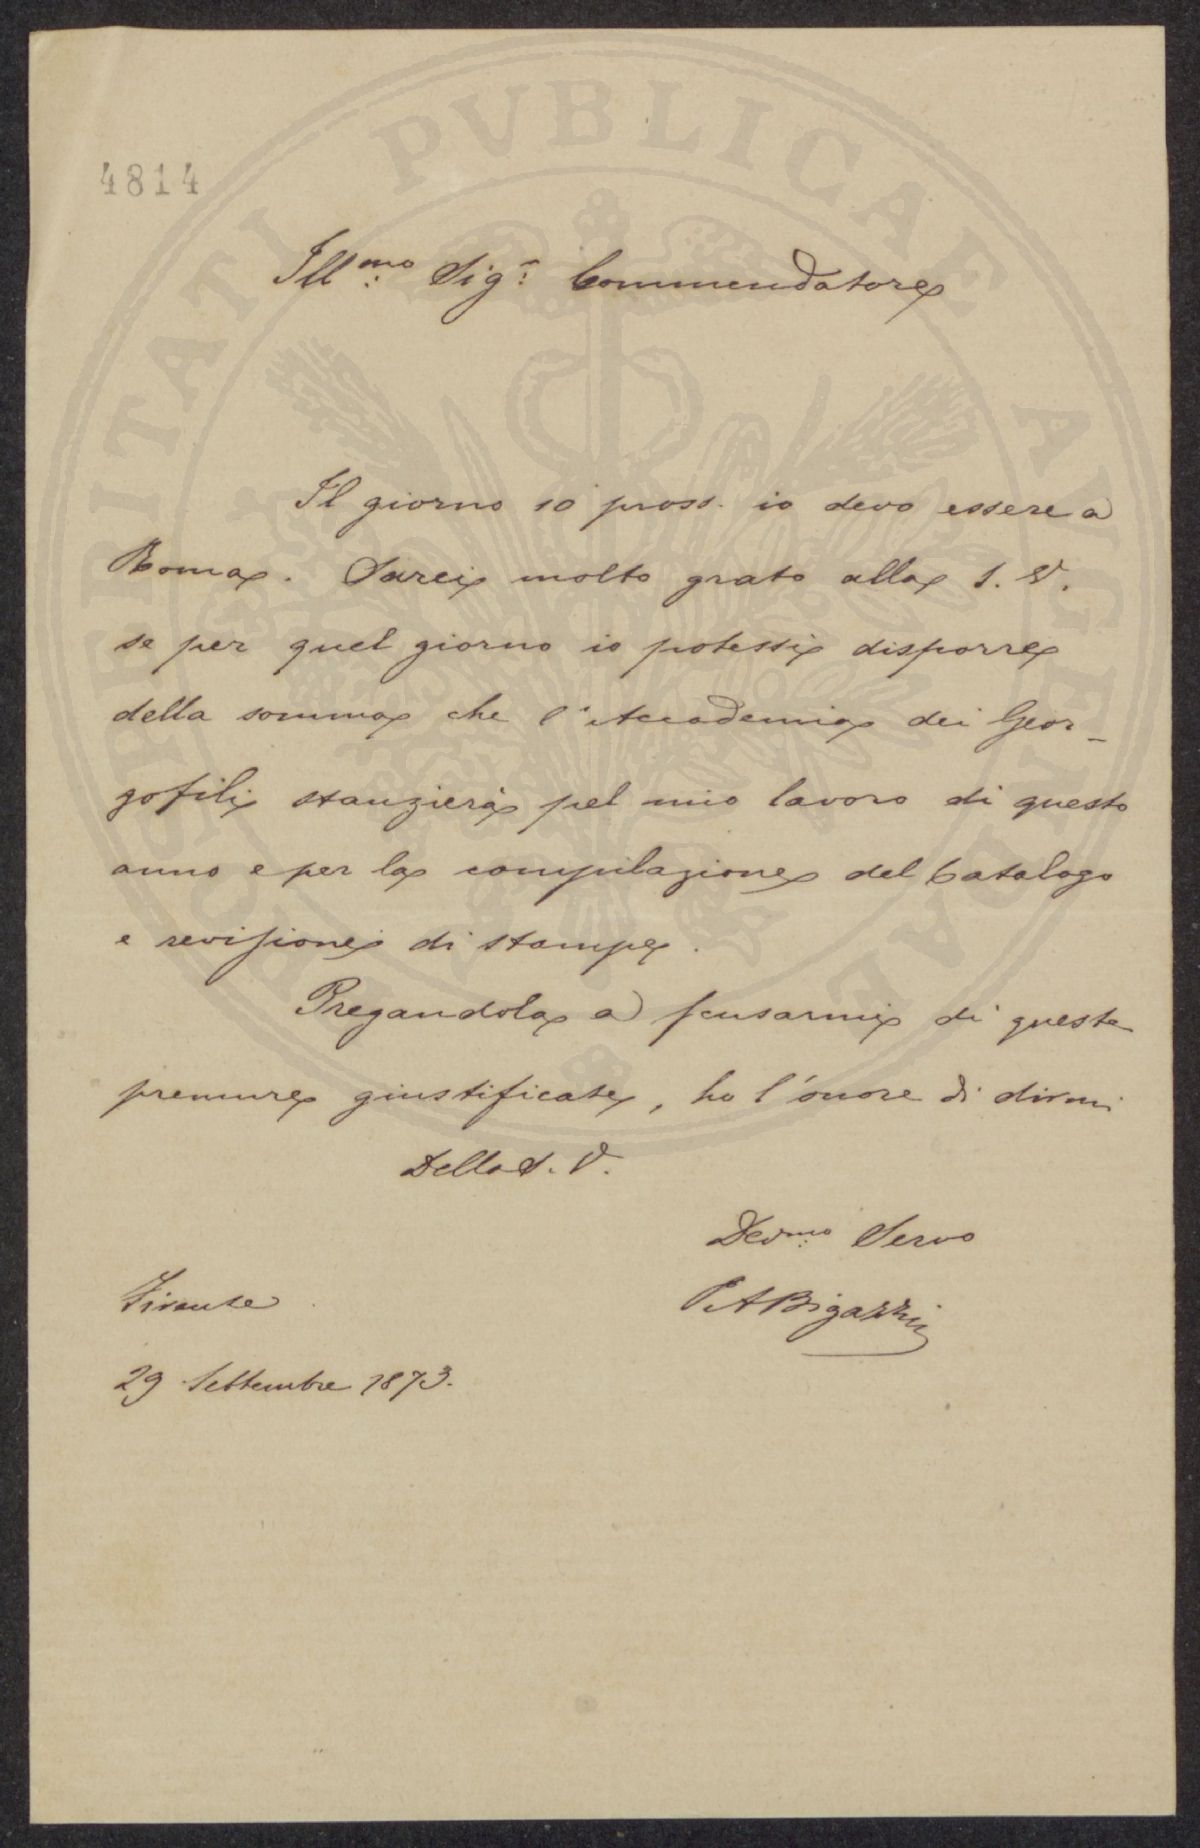 PROSPERITATI PVBLICAE AVGENDAE
4814
Ill.mo Sig.r Commendatore
Il giorno 10 pross. io devo essere a
Roma. Sarei molto grato alla S. V.
se per quel giorno io potessi disporre
della somma che l'Accademia dei Geor-
gofili stanzierà pel mio lavoro di questo
anno e per la compilazione del Catalogo
e revisione di stampe.
Pregandola a scusarmi di queste
premure giustificate, ho l'onore di dirmi
Della S. V.
Dev.mo Servo
P. A Bigazzi
Firenze
29 Settembre 1873.